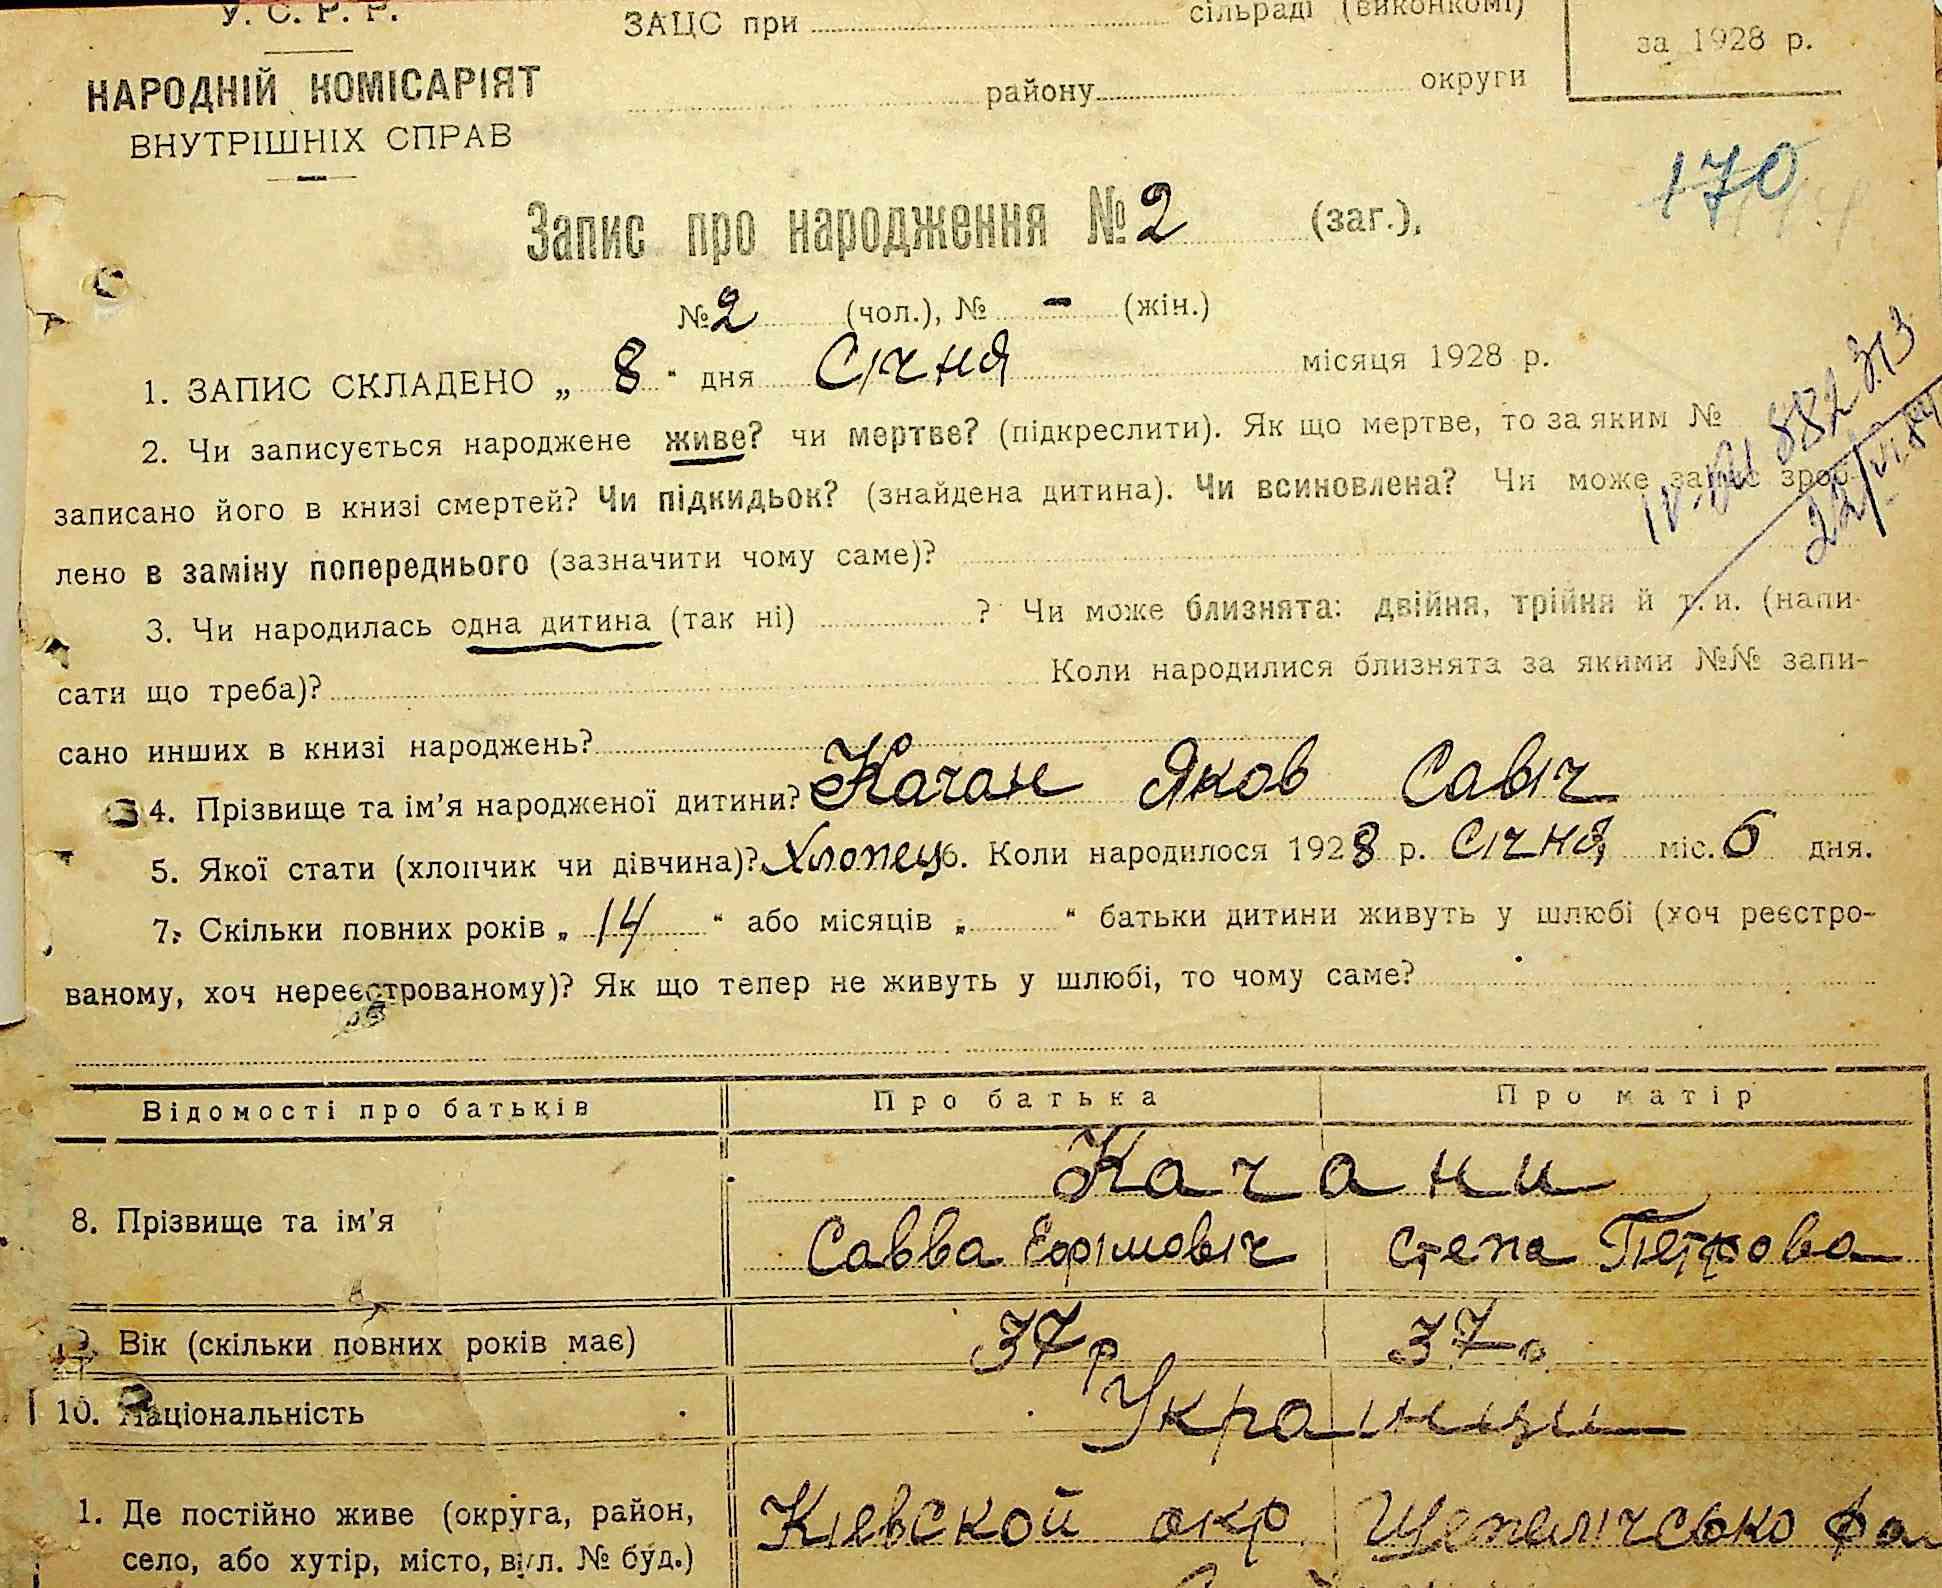 У. С. Р. Р.
ЗАЦС при сільраді (виконкомі)
за 1928 р.
НАРОДНІЙ КОМІСАРІЯТ
району округи
ВНУТРІШНІХ СПРАВ
170
Запис про народження № 2 (заг.),
№ 2 (чол.), № - (жін.)
1. ЗАПИС СКЛАДЕНО „ 8 " дня Січня місяця 1928 р.
2. Чи записується народжене живе? чи мертве? (підкреслити). Як що мертве, то за яким №
записано його в книзі смертей? Чи підкидьок? (знайдена дитина). Чи всиновлена? Чи може запис зроб-
лено в заміну попереднього (зазначити чому саме)?
3. Чи народилась одна дитина (так ні) ? Чи може близнята: двійня, трійня й т. и. (напи-
сати що треба)? Коли народилися близнята за якими №№ запи-
сано инших в книзі народжень?
4. Прізвище та ім'я народженої дитини? Качан Яков Савіч
5. Якої стати (хлопчик чи дівчина)? Хлопець 6. Коли народилося 1928 р. Січня міс. 6 дня.
7. Скільки повних років „ 14 " або місяців „ " батьки дитини живуть у шлюбі (хоч реєстро-
ваному, хоч нереєстрованому)? Як що тепер не живуть у шлюбі, то чому саме?
Відомості про батьків Про батька Про матір
Качани
8. Прізвище та ім'я Савва Ефімовіч Степа Петрова
9. Вік (скільки повних років має) 37 р 37 р
10. Національність Украінци
1. Де постійно живе (округа, район, Кіевской окр Щепелічсько
село, або хутір, місто, вул. № буд.)